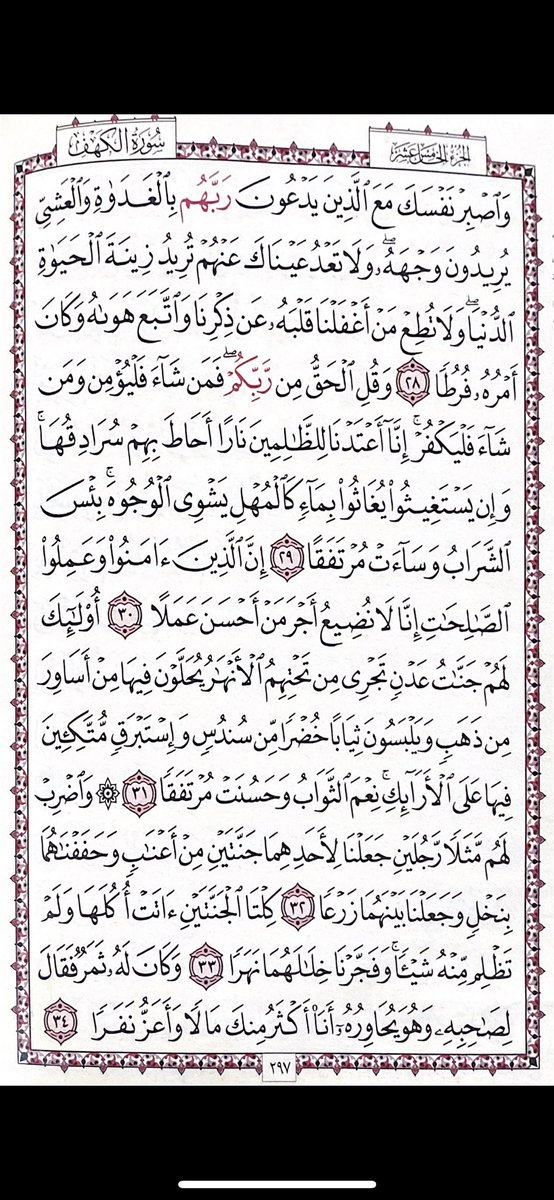 سُورَةُ الكَهْفِ
الجُزْءُ الخَامِسَ عَشَرَ
وَٱصۡبِرۡ نَفۡسَكَ مَعَ ٱلَّذِينَ يَدۡعُونَ رَبَّهُم بِٱلۡغَدَوٰةِ وَٱلۡعَشِيِّ
يُرِيدُونَ وَجۡهَهُۥۖ وَلَا تَعۡدُ عَيۡنَاكَ عَنۡهُمۡ تُرِيدُ زِينَةَ ٱلۡحَيَوٰةِ
ٱلدُّنۡيَاۖ وَلَا تُطِعۡ مَنۡ أَغۡفَلۡنَا قَلۡبَهُۥ عَن ذِكۡرِنَا وَٱتَّبَعَ هَوَىٰهُ وَكَانَ
أَمۡرُهُۥ فُرُطٗا ٢٨ وَقُلِ ٱلۡحَقُّ مِن رَّبِّكُمۡۖ فَمَن شَآءَ فَلۡيُؤۡمِن وَمَن
شَآءَ فَلۡيَكۡفُرۡۚ إِنَّآ أَعۡتَدۡنَا لِلظَّٰلِمِينَ نَارًا أَحَاطَ بِهِمۡ سُرَادِقُهَاۚ
وَإِن يَسۡتَغِيثُواْ يُغَاثُواْ بِمَآءٖ كَٱلۡمُهۡلِ يَشۡوِي ٱلۡوُجُوهَۚ بِئۡسَ
ٱلشَّرَابُ وَسَآءَتۡ مُرۡتَفَقًا ٢٩ إِنَّ ٱلَّذِينَ ءَامَنُواْ وَعَمِلُواْ
ٱلصَّٰلِحَٰتِ إِنَّا لَا نُضِيعُ أَجۡرَ مَنۡ أَحۡسَنَ عَمَلًا ٣٠ أُوْلَٰٓئِكَ
لَهُمۡ جَنَّٰتُ عَدۡنٖ تَجۡرِي مِن تَحۡتِهِمُ ٱلۡأَنۡهَٰرُ يُحَلَّوۡنَ فِيهَا مِنۡ أَسَاوِرَ
مِن ذَهَبٖ وَيَلۡبَسُونَ ثِيَابًا خُضۡرٗا مِّن سُندُسٖ وَإِسۡتَبۡرَقٖ مُّتَّكِـِٔينَ
فِيهَا عَلَى ٱلۡأَرَآئِكِۚ نِعۡمَ ٱلثَّوَابُ وَحَسُنَتۡ مُرۡتَفَقٗا ٣١ ۞ وَٱضۡرِبۡ
لَهُم مَّثَلٗا رَّجُلَيۡنِ جَعَلۡنَا لِأَحَدِهِمَا جَنَّتَيۡنِ مِنۡ أَعۡنَٰبٖ وَحَفَفۡنَٰهُمَا
بِنَخۡلٖ وَجَعَلۡنَا بَيۡنَهُمَا زَرۡعٗا ٣٢ كِلۡتَا ٱلۡجَنَّتَيۡنِ ءَاتَتۡ أُكُلَهَا وَلَمۡ
تَظۡلِم مِّنۡهُ شَيۡـٔٗاۚ وَفَجَّرۡنَا خِلَٰلَهُمَا نَهَرٗا ٣٣ وَكَانَ لَهُۥ ثَمَرٞ فَقَالَ
لِصَٰحِبِهِۦ وَهُوَ يُحَاوِرُهُۥٓ أَنَا۠ أَكۡثَرُ مِنكَ مَالٗا وَأَعَزُّ نَفَرٗا ٣٤
٢٩٧